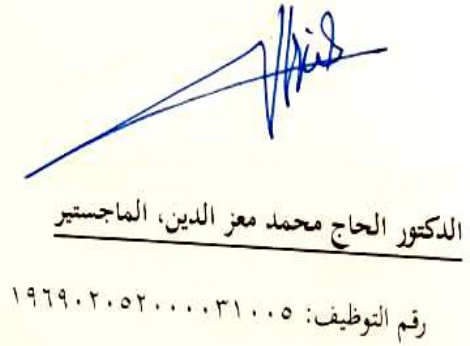 الدكتور الحاج محمد معز الدين، الماجستير
رقم التوظيف: ١٩٦٩٠٢٠٥٢٠٠٠٠٣١٠٠٥